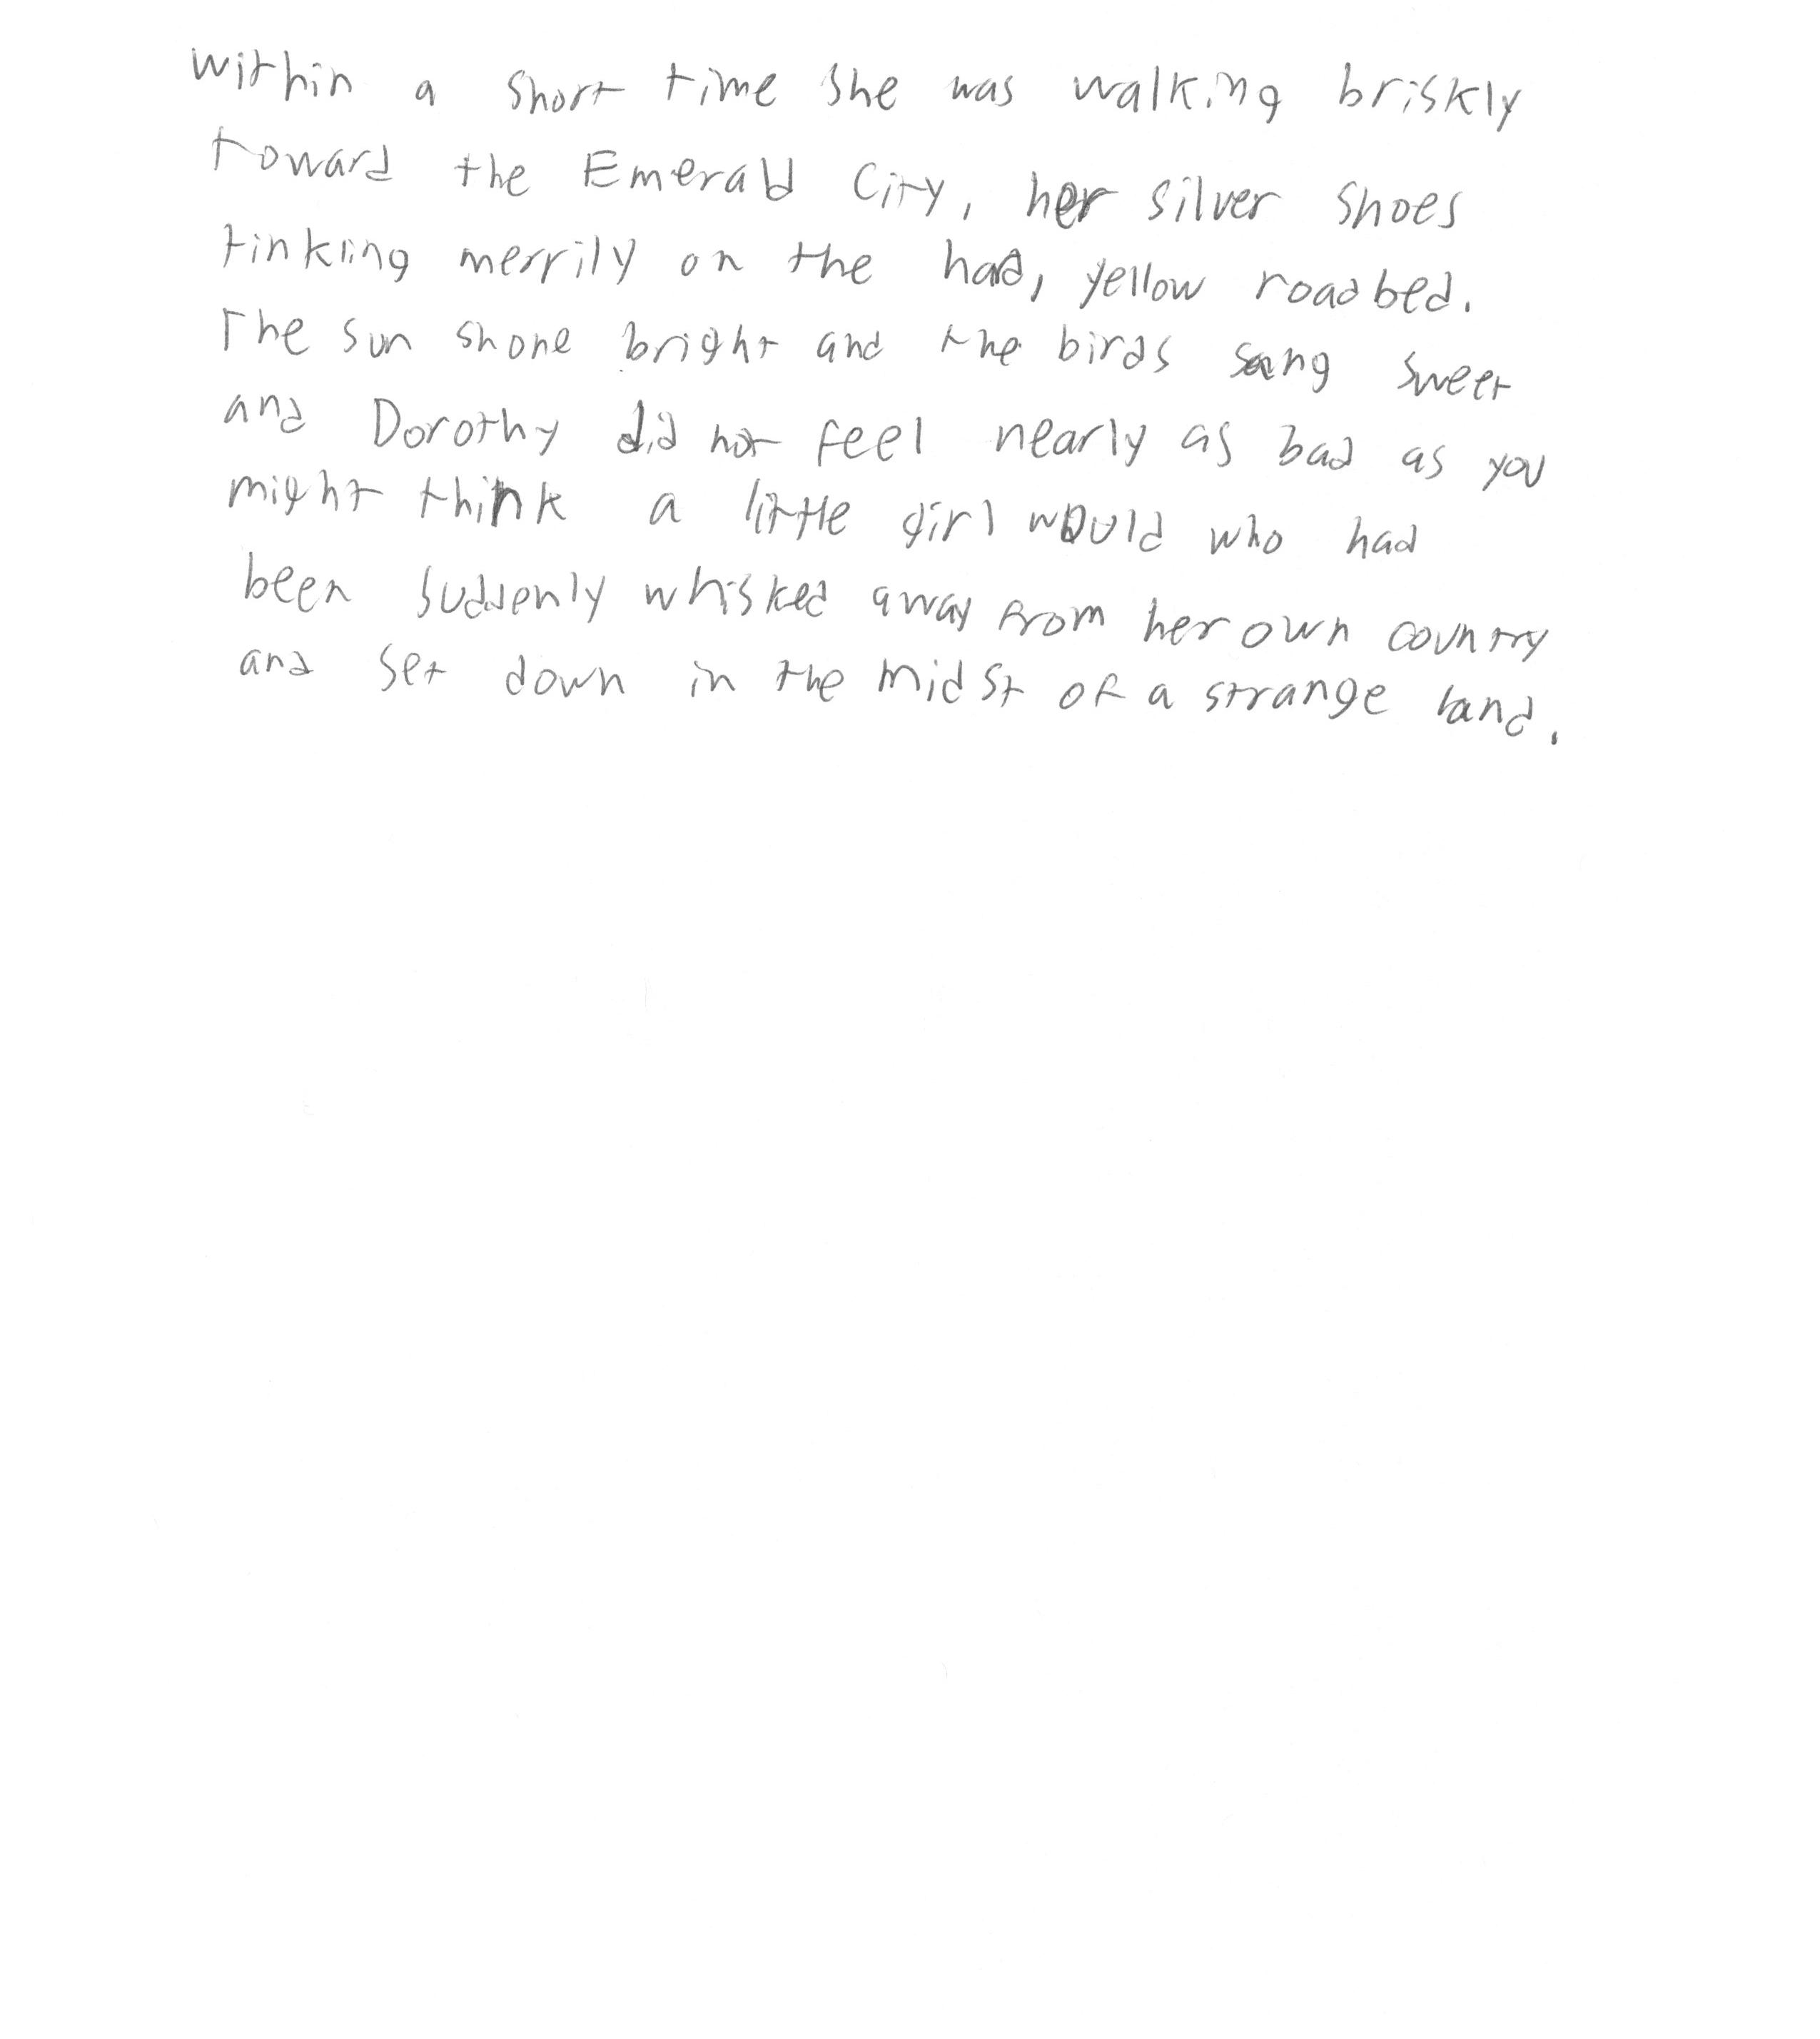 within a short time she was walking briskly
toward the Emerald City, her silver shoes
tinkling merrily on the had, yellow roadbed.
The sun shone bright and the birds sang sweet
and Dorothy did not feel nearly as bad as you
might think a little girl would who had
been suddenly whisked away from her own country
and set down in the midst of a strange land.